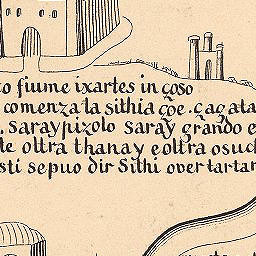 to fiume ixartes in çoso
comenza la sithia çõe. çagata
. saray pizolo saray grãndo e
le oltra thanay e oltra osuc
sti se puo dir Sithi over tartar